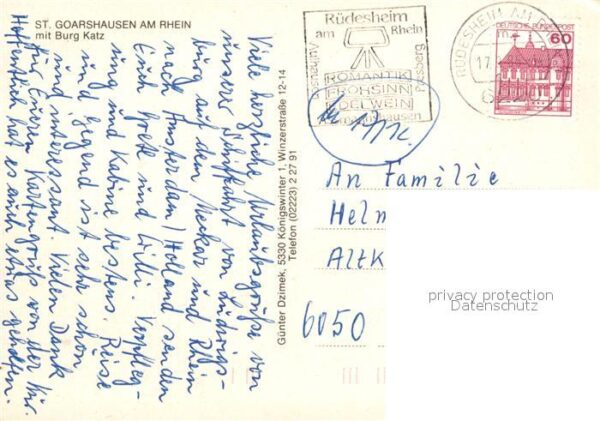 ST. GOARSHAUSEN AM RHEIN
mit Burg Katz
Viele herzliche Urlaubsgrüße von
unserer Schiffahrt von Ludwigs-
burg auf dem Neckar und Rhein
nach Amsterdam/Holland senden
Euch Grete und Willi. Verpfleg-
ung und Kabine bestens. Reise
und Gegend ist sehr schön
und interessant. Vielen Dank
für Eueren Kartengruß von der Kur.
Hoffentlich hat es euch etwas geholfen.
Günter Dzimek, 5330 Königswinter 1, Winzerstraße 12-14
Telefon (02223) 2 27 91
Rüdesheim
am Rhein
Aulhausen
Presberg
ROMANTIK
FROHSINN
EDELWEIN
Assmannshausen
RÜDESHEIM AM
17.
DEUTSCHE BUNDESPOST
60
An Familie
Helm
Altk
6050
privacy protection
Datenschutz